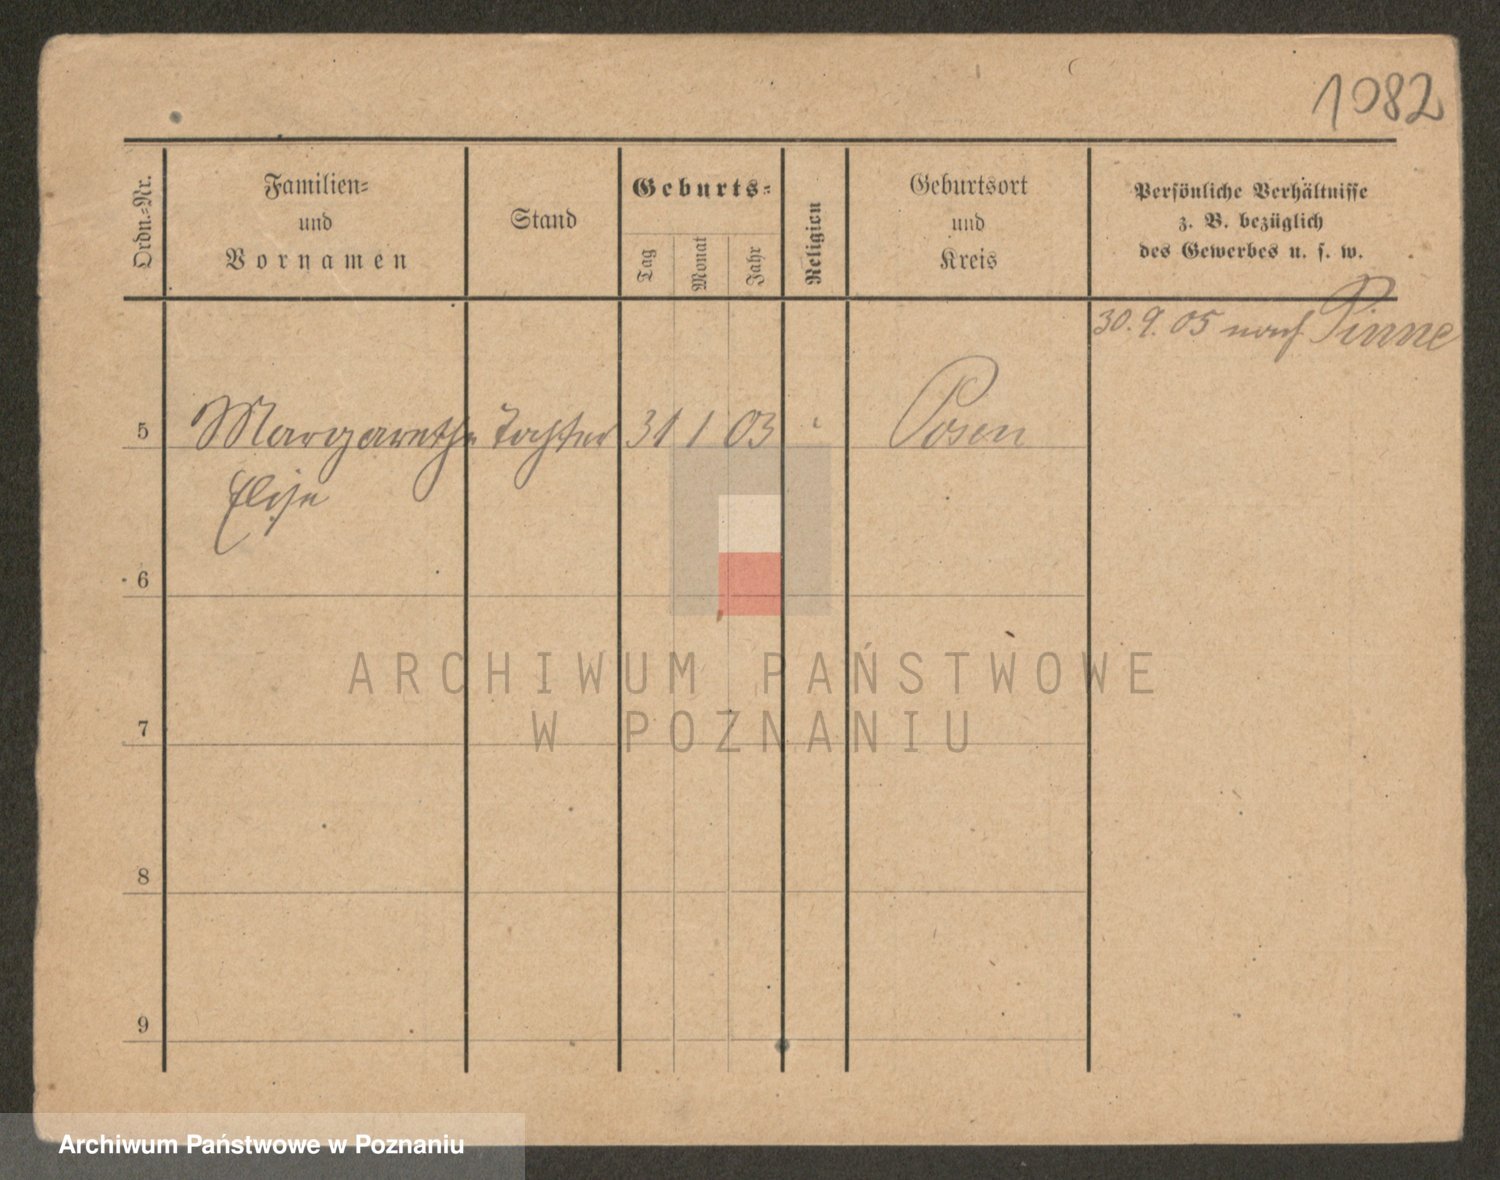 1082
Ordn.-Nr.
Familien-
und
Vornamen
Stand
Geburts-
Tag
Monat
Jahr
Religion
Geburtsort
und
Kreis
Persönliche Verhältnisse
z. B. bezüglich
des Gewerbes u. s. w.
30.9.05 nach Pinne
5 Margarethe Tochter 31 1 03 Posen
Elise
6
7
8
9
ARCHIWUM PAŃSTWOWE
W POZNANIU
Archiwum Państwowe w Poznaniu